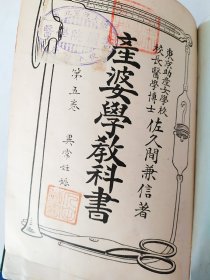 東京助產女學校
校長醫學博士 佐久間兼信著
産婆學教科書
第五卷
異常妊娠